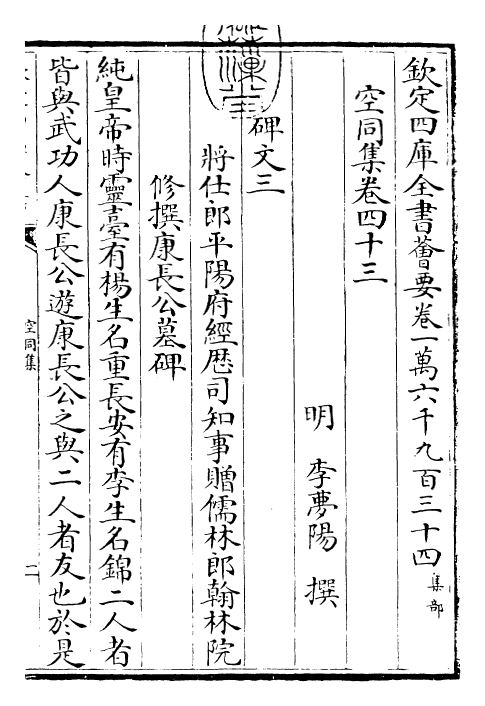 欽定四庫全書薈要卷一萬六千九百三十四集部
空同集卷四十三
明 李夢陽 撰
碑文三
將仕郎平陽府經歷司知事贈儒林郎翰林院
修撰康長公墓碑
純皇帝時靈臺有楊生名重長安有李生名錦二人者
皆與武功人康長公遊康長公之與二人者友也於是
空同集